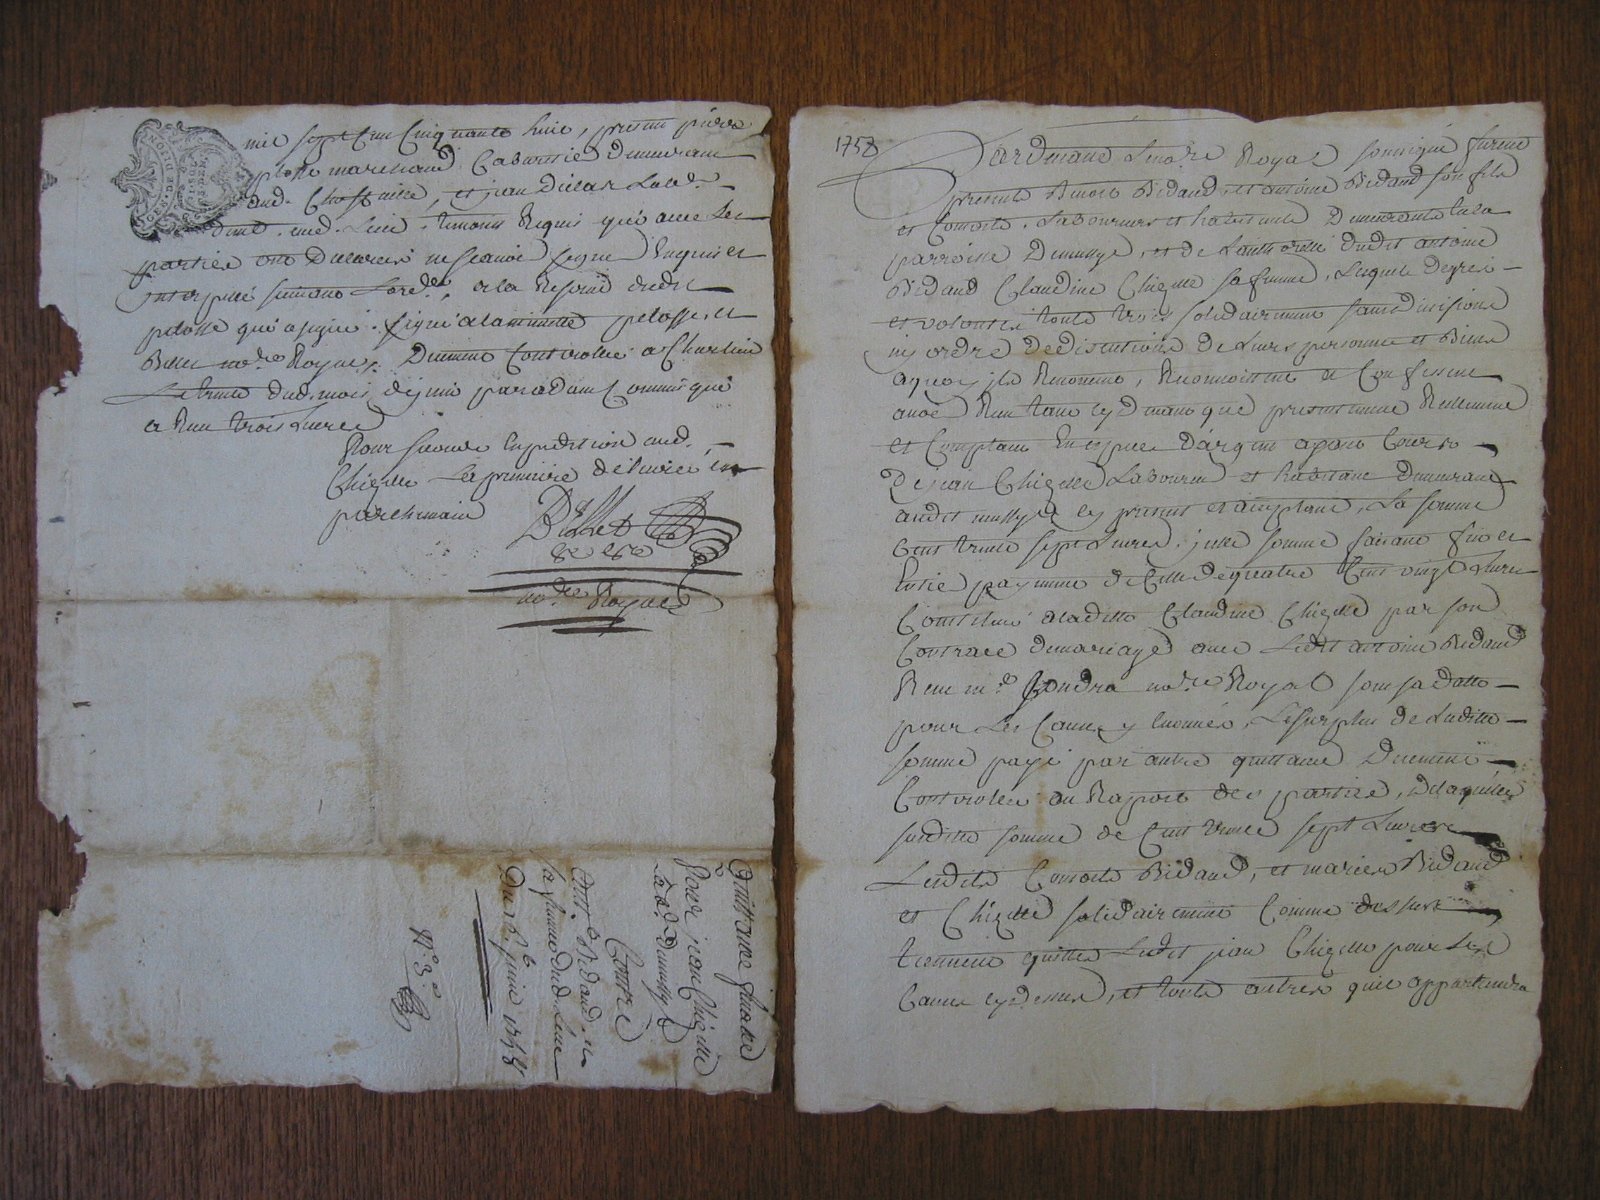 mil sept Cens Cinquante huit, present pierre
plosse marchand Cabaretié demeurant
aud.
aud. Lieu, temoins Requis qui avec Les
parties ont declarés ne scavoir signe Enquis et
interpellé suivant Lord.ce, a la Reserve dudit
pelosse qui a signé. signé a la minutte pelosse, et
Billet no.re Royal. Duement Controollé a Charlieu
Le trente dud. mois de juin par adam Commis qui
a Reçu trois Livres
Pour seconde Expedition aud.
Chizelle La premiere delivrée en
parchemain
Billet
no.re Royal
Quittance finale
pour jean Chizelle
Lab.r de mussy
Contre
Ant.e Bidaud et
sa femme dud. Lieu
Du juin 1758
N.o 3.e
1758
Pardevant Le no.re Royal soussigné furent
presents Benoit Bidaud et antoine Bidaud son fils
et Consorts, Laboureurs et habitants Demeurants en la
parroisse de mussy, et de Lauthorité dudit antoine
Bidaud Claudine Chizelle sa femme, Lesquels de gré
et volontés touts trois solidairement sans division
ny ordre de discutions de Leurs personnes et Biens
a quoy ils Renoncent, Reconnoissent et Confessent
avoir Reçu tant cy devant que presentement Reellement
et Comptant En espece d'argent ayant Cours
De jean Chizelle Laboureur et habitant demeurant
audit mussy icy present et acceptant, La somme
Cent trente sept Livres, icelle somme faisant fin et
Entié payement de Celle de quatre Cent vingt Livres
Constitué a laditte Claudine Chizelle par son
Contract de mariage avec Ledit antoine Bidaud
Reçu m.e no.re Royal sous sa datte
pour Les Causes y Enoncées, Le surplus de Laditte
somme payé par autre quittance Duement
Controllée au Raport des parties, de laquelle
susditte somme de Cent trente sept Livres
Lesdits Consorts Bidaud, et mariés Bidaud
et Chizelle solidairement Comme dessus
tiennent quitte Ledit jean Chizelle pour Les
Causes cy dessus, et touts autres qu'il appartiendra